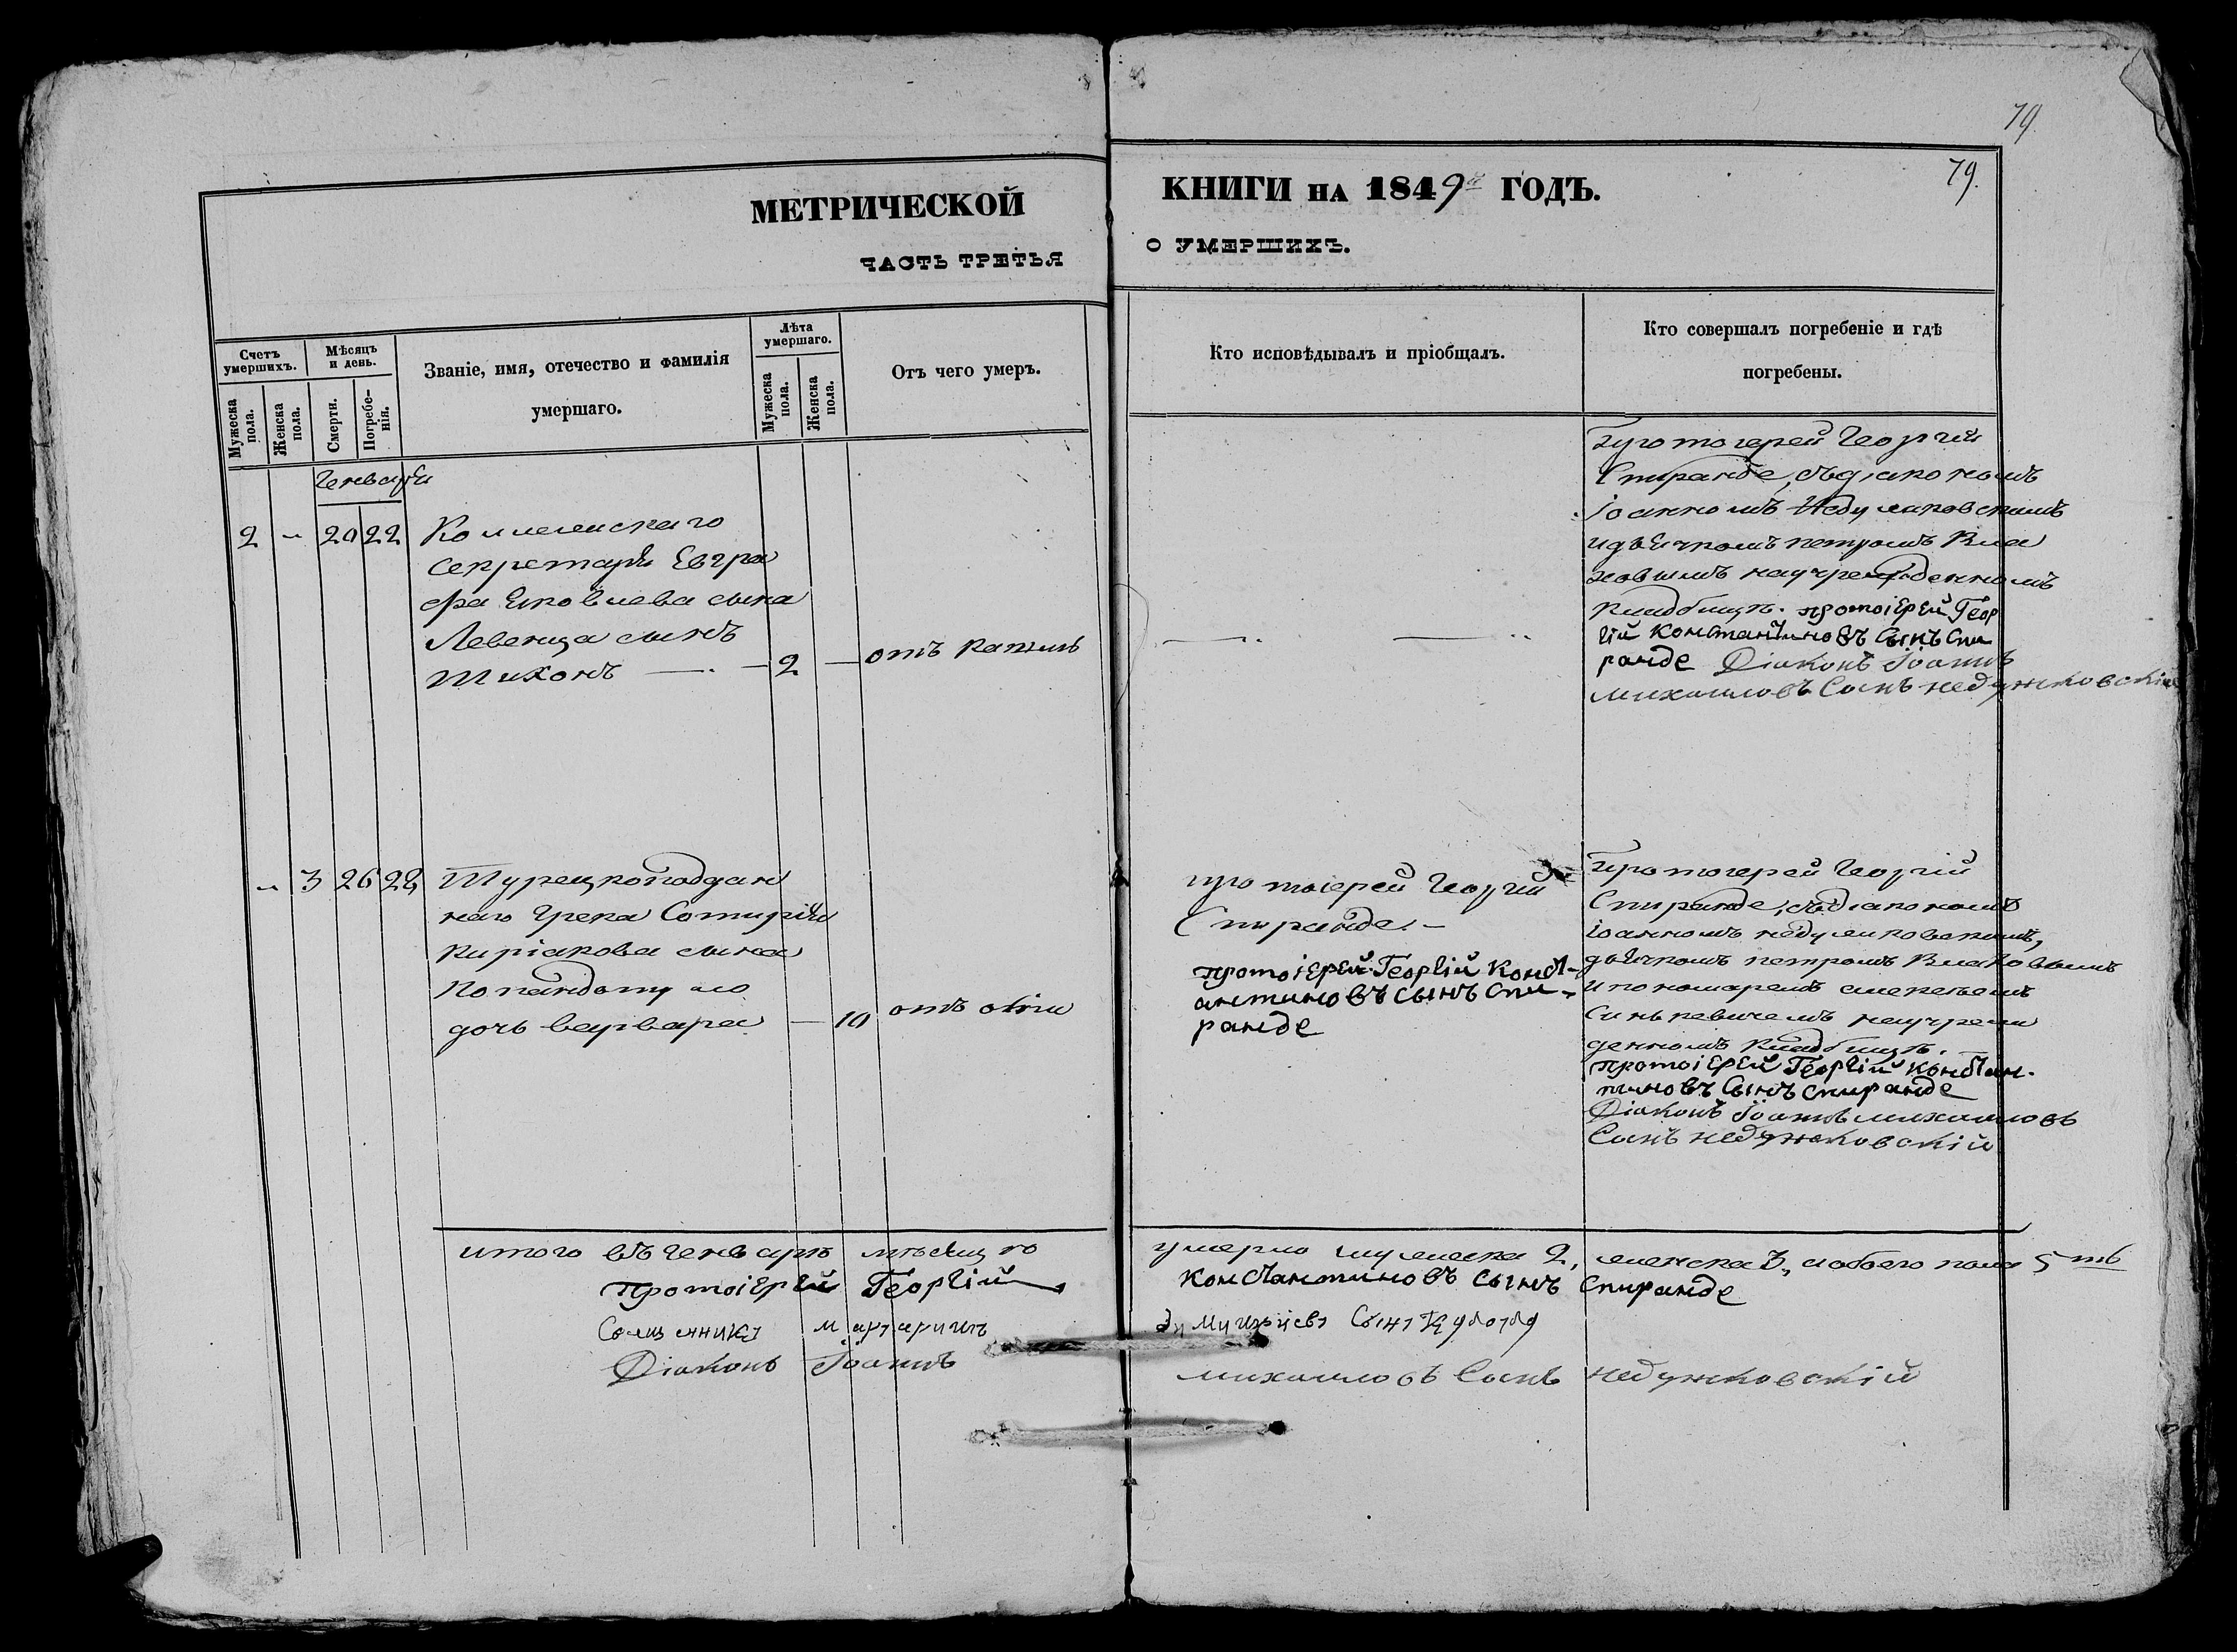 79.
МЕТРИЧЕСКОЙ
ЧАСТЬ ТРЕТЬЯ
Счетъ умершихъ.
Мужеска пола.
Женска пола.
Мѣсяцъ и день.
Смерти.
Погребенія.
Званіе, имя, отечество и фамилія
умершаго.
Лѣта умершаго.
Мужеска пола.
Женска пола.
Отъ чего умеръ.
КНИГИ НА 1849й ГОДЪ.
79.
О УМЕРШИХЪ.
Кто исповѣдывалъ и пріобщалъ.
Кто совершалъ погребеніе и гдѣ
погребены.
Генваря
2 - 20 22 Коллежскаго
секретаря Евгра
фа Яковлева сына
Левенца сынъ
Тихонъ — 2 — отъ кашля
Протоіерей Георгій
Спиранде, съ діакономъ
Іоанномъ Недужковскимъ
и дьячкомъ петромъ Вла
ховымъ на учрежденномъ
кладбищѣ. протоіерей Геор
гій Константиновъ Сынъ Спи
ранде Діаконъ Іоаннъ
михаиловъ Сынъ недужковскій
- 3 26 28 Турецкоподдан
наго Грека Сотирія
киріакова сына
дочь варвара — 10
протоіерей Георгій
Спиранде. -
протоіерей Георгій Конст-
антиновъ сынъ Спи-
ранде
Протоіерей Георгій
Спиранде, съ діакономъ
іоанномъ недужковскимъ,
дьячкомъ петромъ Влаховымъ
и пономаремъ
на учреж
денномъ кладбищѣ.
протоіерей Георгій Констан-
тиновъ Сынъ Спиранде
Діаконъ Іоаннъ михаиловъ
Сынъ недужковскій
итого въ генварѣ мѣсяцѣ умерло мужеска 2, женска 3, и обоего пола 5ть
протоіерей Георгій Константиновъ Сынъ Спиранде
Священникъ Сынъ
Діаконъ Іоаннъ михаиловъ Сынъ недужковскій